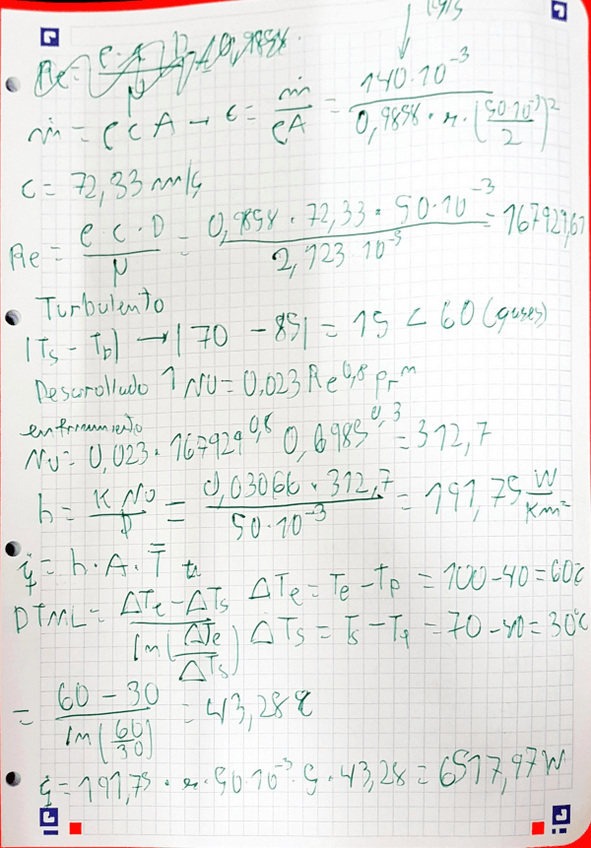 Kg/s
ṁ = ρ c A → c = ṁ / ρA = 140·10⁻³ / 0,9858 · π · (50·10⁻³ / 2)²
c = 72,33 m/s
Re = ρ · c · D / μ = 0,9858 · 72,33 · 50·10⁻³ / 2,123 · 10⁻⁵ = 167929,61
Turbulento
|Ts - Tb| → |70 - 85| = 15 < 60 (gases)
Desarrollado 1 NU = 0,023 Re^0,8 Pr^m
enfriamiento
NU = 0,023 · 167929^0,8 0,6985^0,3 = 312,7
h = K NU / D = 0,03066 · 312,7 / 50·10⁻³ = 191,75 W / Km²
q̇ = h · A · T̄
DTML = ΔTe - ΔTs / ln(ΔTe / ΔTs) ΔTe = Te - Tp = 100 - 40 = 60℃
ΔTs = Ts - Tp = 70 - 40 = 30℃
= 60 - 30 / ln(60 / 30) = 43,28 ℃
q̇ = 191,75 · π · 50·10⁻³ · 5 · 43,28 = 6517,97 W